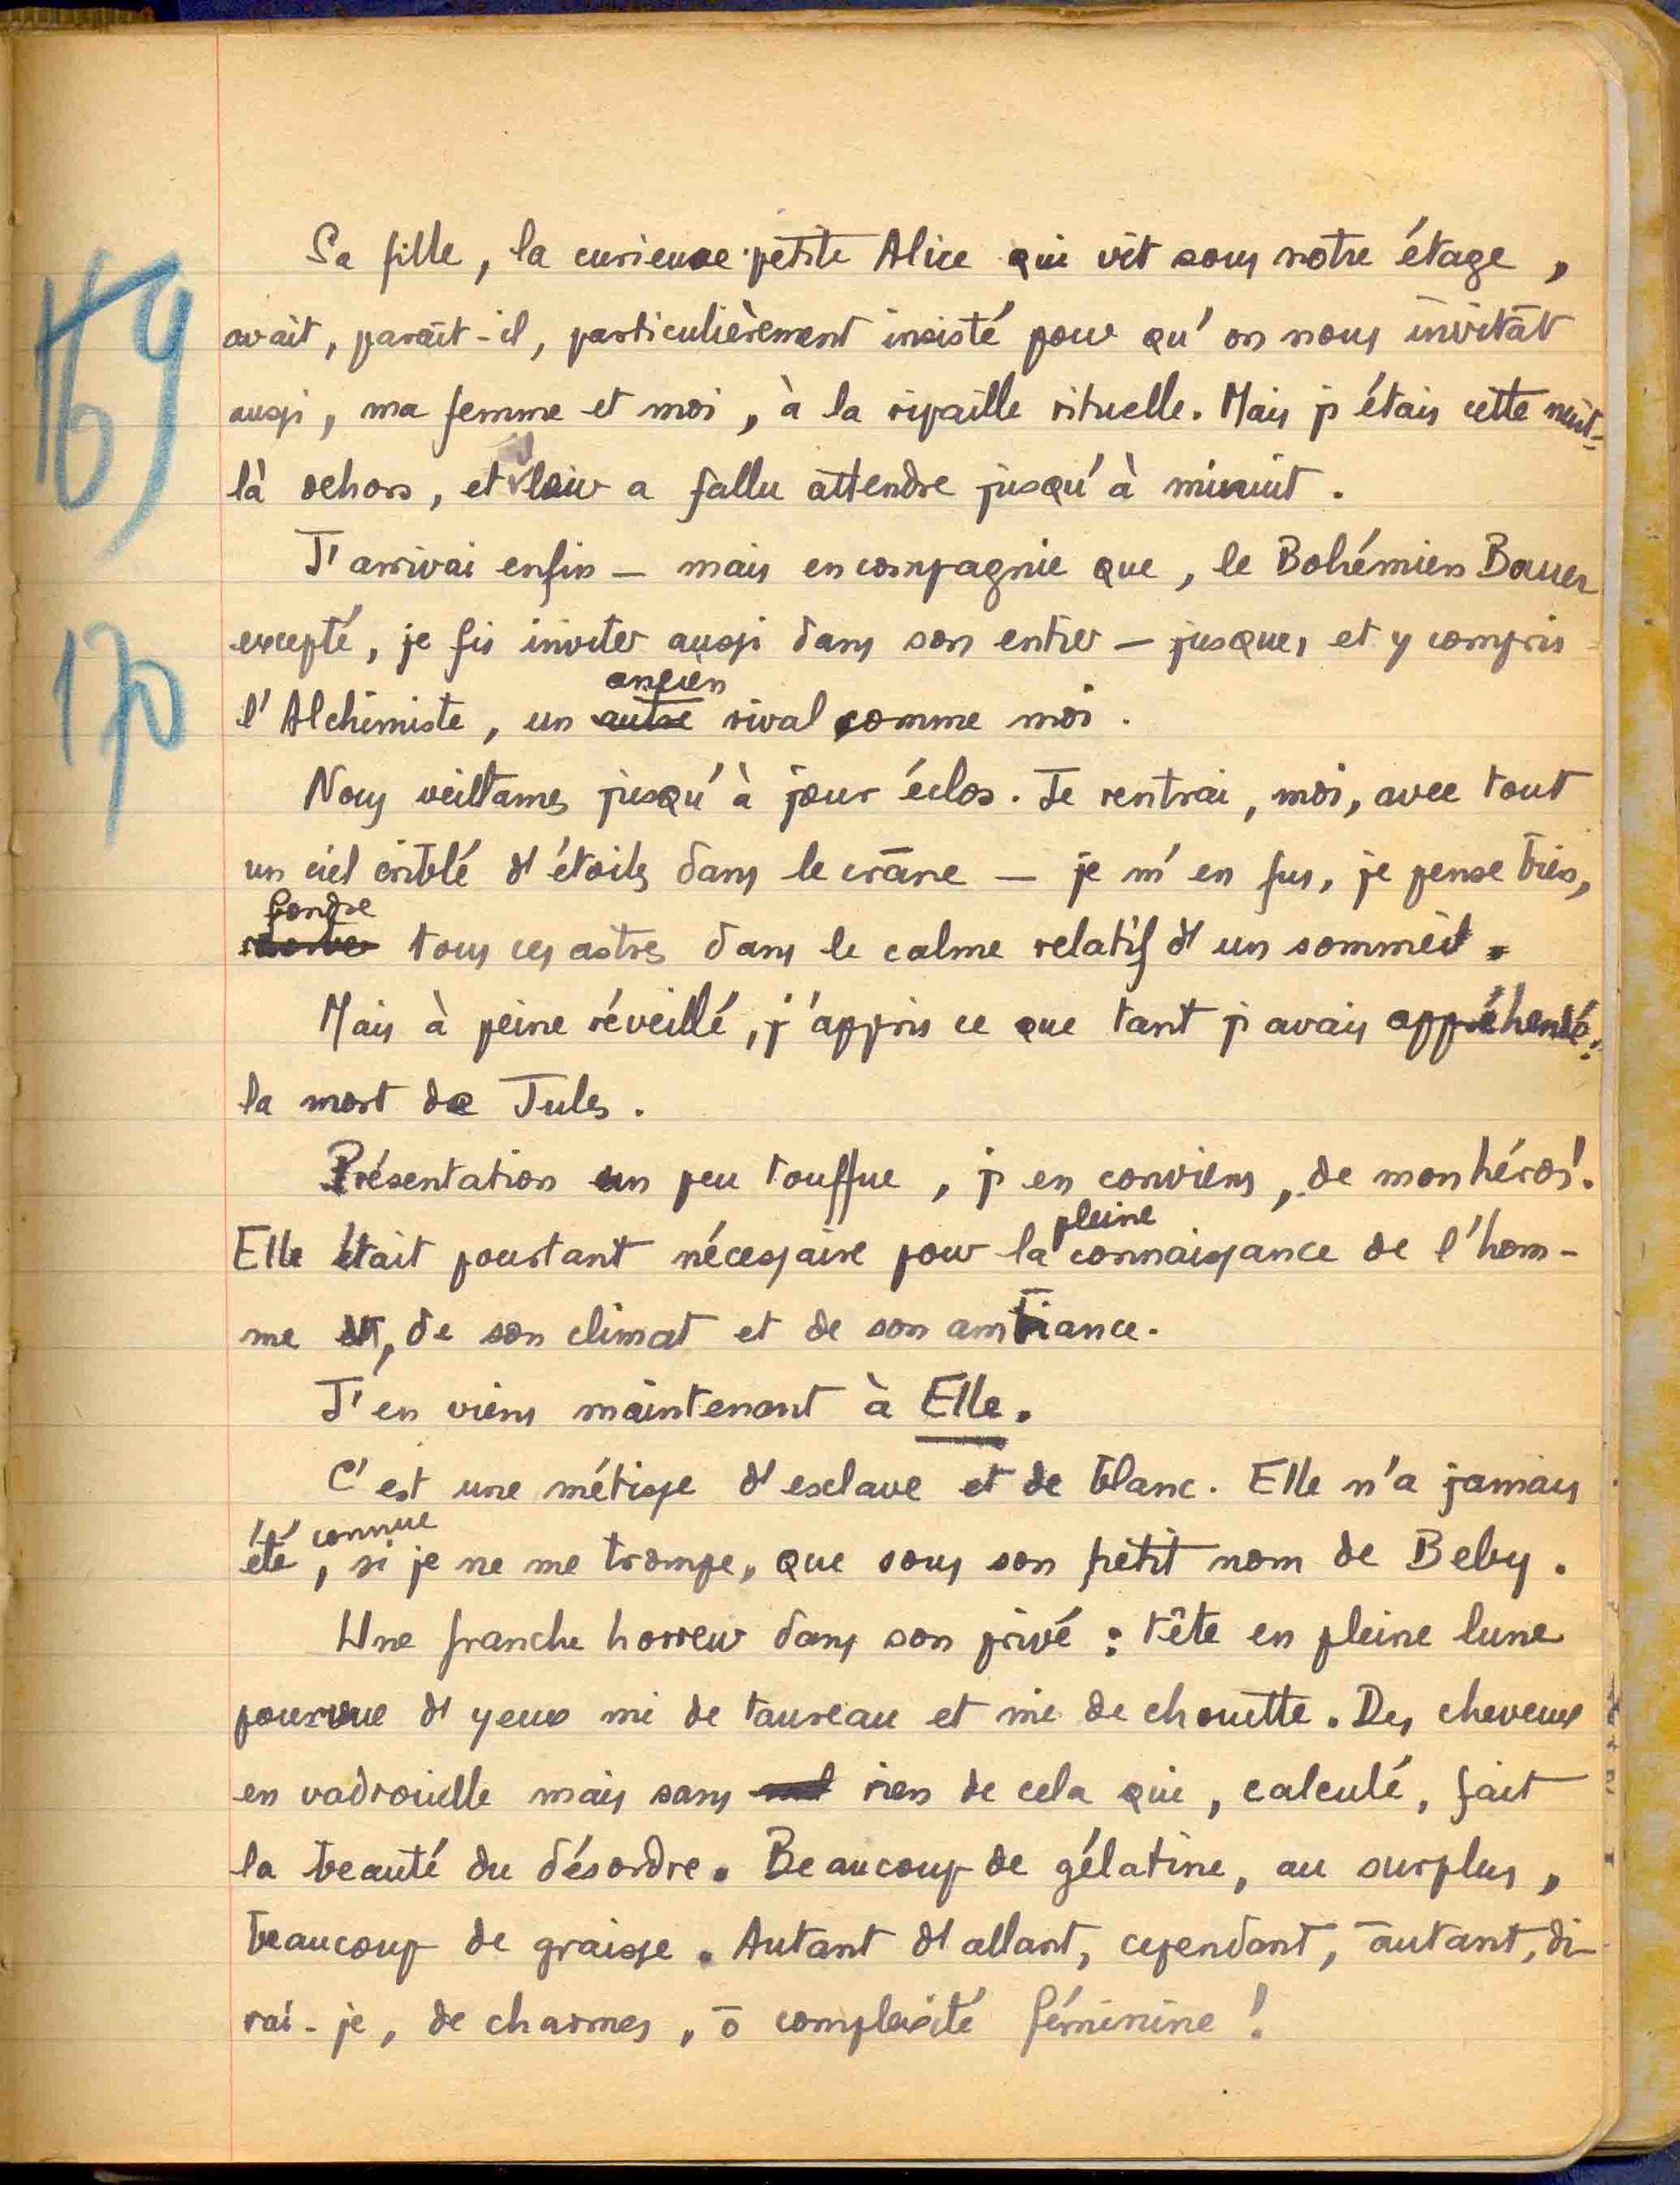 169
170
Sa fille, la curieuse petite Alice qui vit sous notre étage,
avait, paraît-il, particulièrement insisté pour qu'on nous invitât
aussi, ma femme et moi, à la ripaille rituelle. Mais j'étais cette nuit-
là dehors, et leur a fallu attendre jusqu'à minuit.
J'arrivai enfin — mais en compagnie que, le Bohémien Bauer
excepté, je fis inviter aussi dans son entier — jusque, et y compris
ancien
l'Alchimiste, un autre rival comme moi.
Nous veillames jusqu'à jour éclos. Je rentrai, moi, avec tout
un ciel criblé d'étoiles dans le crâne — je m'en fus, je pense bien,
fondre
tous ces astres dans le calme relatif d'un sommeil.
Mais à peine réveillé, j'appris ce que tant j'avais appréhendé:
la mort de Jules.
Présentation un peu touffue, j'en conviens, de mon héros!
pleine
Elle était pourtant nécessaire pour la connaissance de l'hom-
me, de son climat et de son ambiance.
J'en viens maintenant à Elle.
C'est une métisse d'esclave et de blanc. Elle n'a jamais
connue
été, si je ne me trompe, que sous son petit nom de Beby.
Une franche horreur dans son privé: tête en pleine lune
pourvue d'yeux mi de taureau et mi de chouette. Des cheveux
en vadrouille mais sans rien de cela qui, calculé, fait
la beauté du désordre. Beaucoup de gélatine, au surplus,
beaucoup de graisse. Autant d'allant, cependant, autant, di-
rai-je, de charmes, ô complexité féminine!